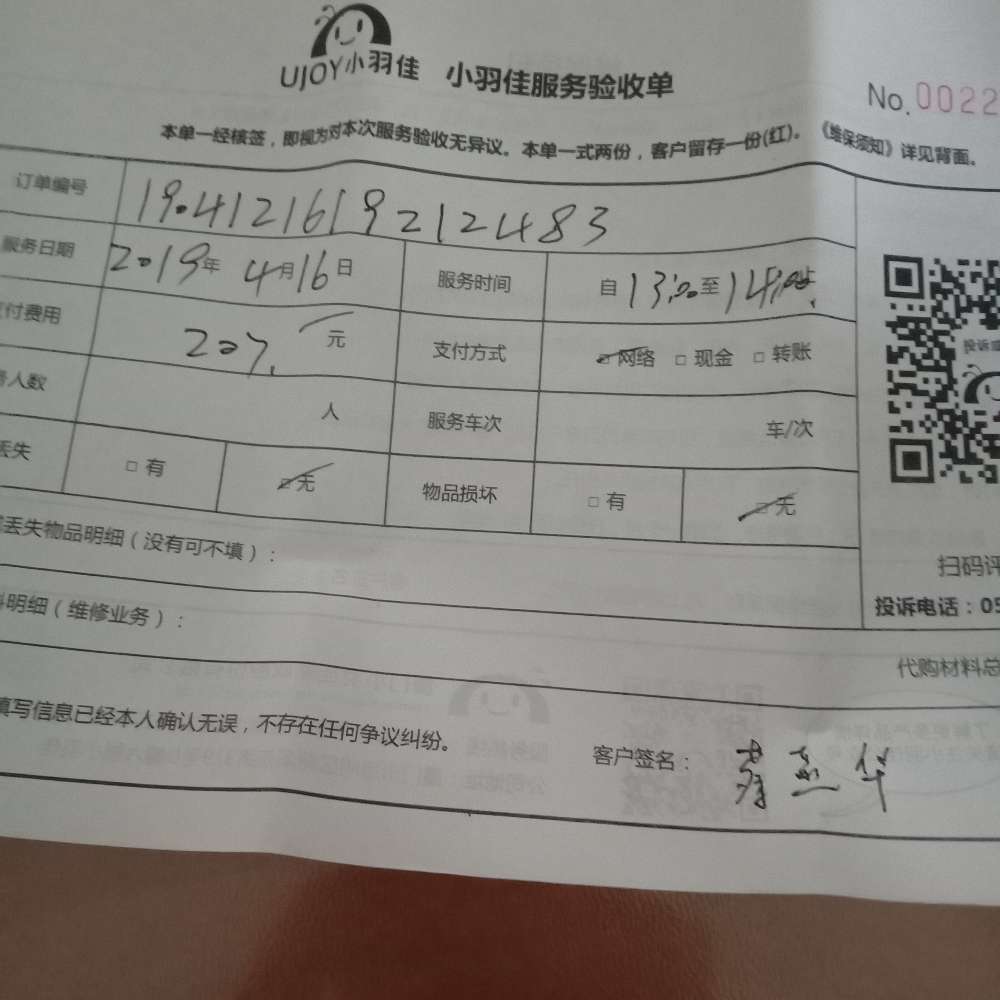 UJOY小羽佳 小羽佳服务验收单
No.0022
本单一经核签，即视为对本次服务验收无异议。本单一式两份，客户留存一份(红)。《维保须知》详见背面。
订单编号 1904121619212483
服务日期 2019年 4月16日 服务时间 自 13:00 至 14:00
付费用 207. 元 支付方式 □ 网络 □ 现金 □ 转账
人数 人 服务车次 车/次
丢失 □ 有 □ 无 物品损坏 □ 有 □ 无
投诉
丢失物品明细（没有可不填）：
扫码评
料明细（维修业务）：
投诉电话：05
代购材料总
填写信息已经本人确认无误，不存在任何争议纠纷。
客户签名：